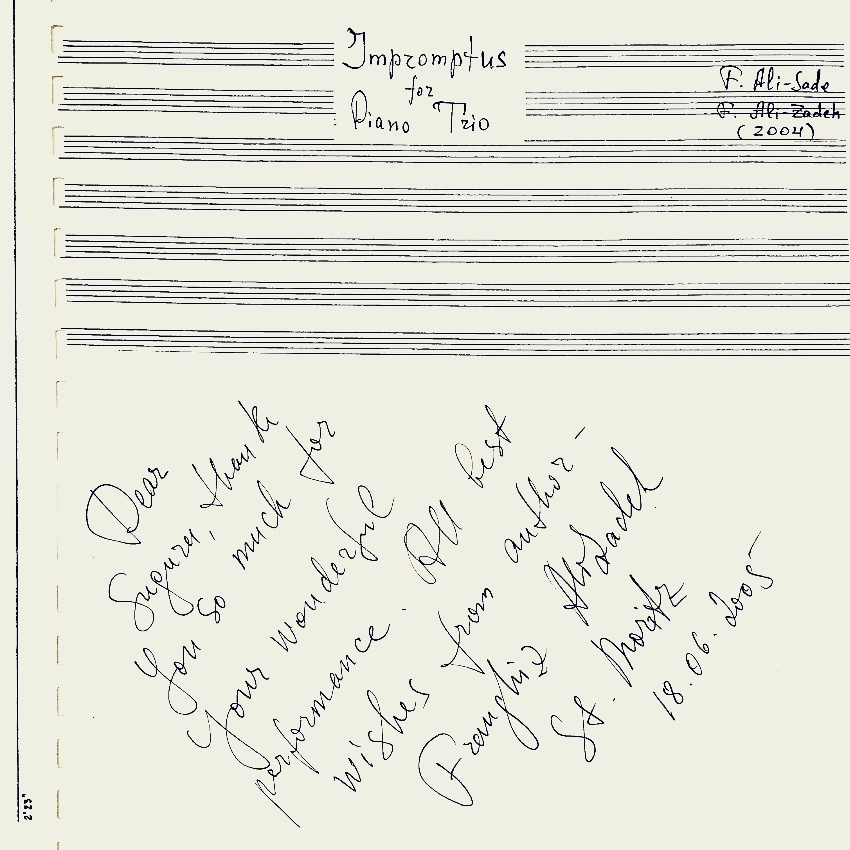 Impromptus
for
Piano Trio
F. Ali-Sade
F. Ali-Zadeh
(2004)
Dear
thank
you so much for
Your wonderful
performance. All best
wishes from author-
Franghiz Ali-Zadeh
St. Moritz
18.06.2005
2'23"